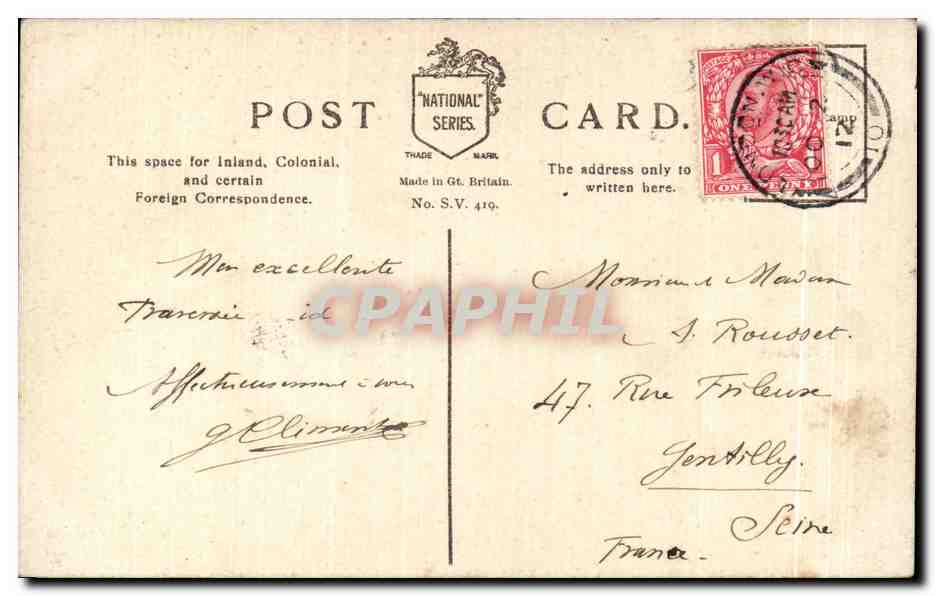 POST CARD.
"NATIONAL"
SERIES.
TRADE MARK.
This space for Inland, Colonial,
and certain
Foreign Correspondence.
Made in Gt. Britain.
No. S.V. 419.
The address only to
written here.
ONE PENNY
1
12
excellente
id
Affectueusement à vous
CPAPHIL
Monsieur & Madam
Rousset.
47. Rue Frileuse
Gentilly.
Seine
France.